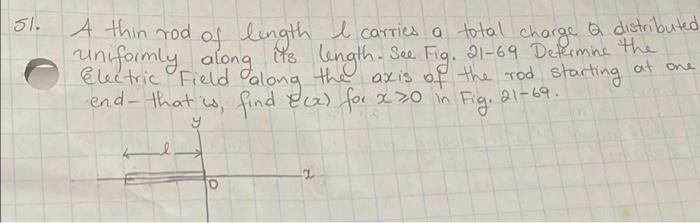 51. A thin rod of length l carries a total charge Q distributed
uniformly along its length. See Fig. 21-69 Determine the
Electric Field along the axis of the rod starting at one
end - that is, find E(x) for x≥0 in Fig. 21-69.
y
l
x
0